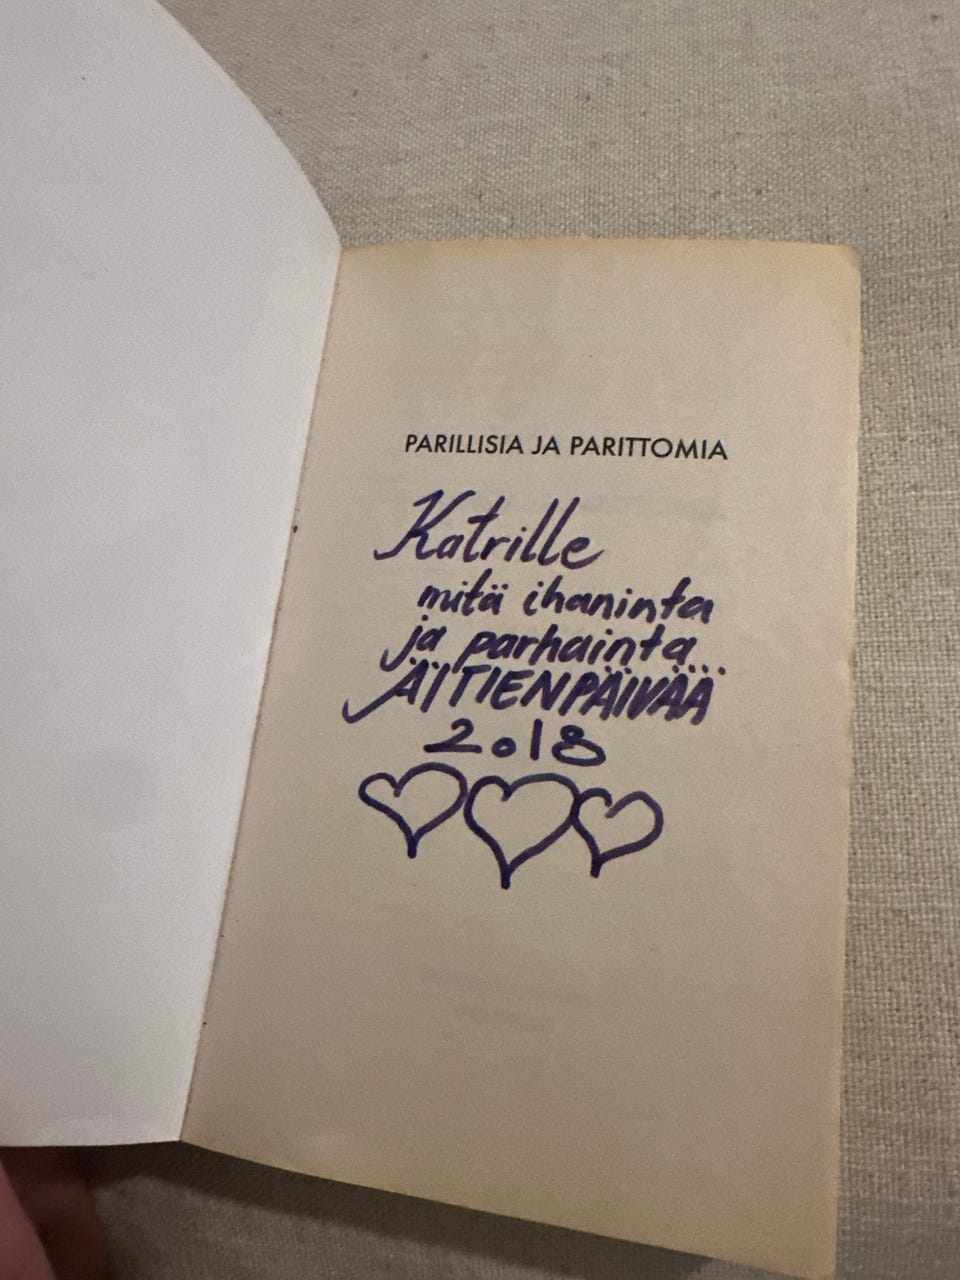 PARILLISIA JA PARITTOMIA
Katrille
mitä ihaninta
ja parhainta...
ÄITIENPÄIVÄÄ
2018